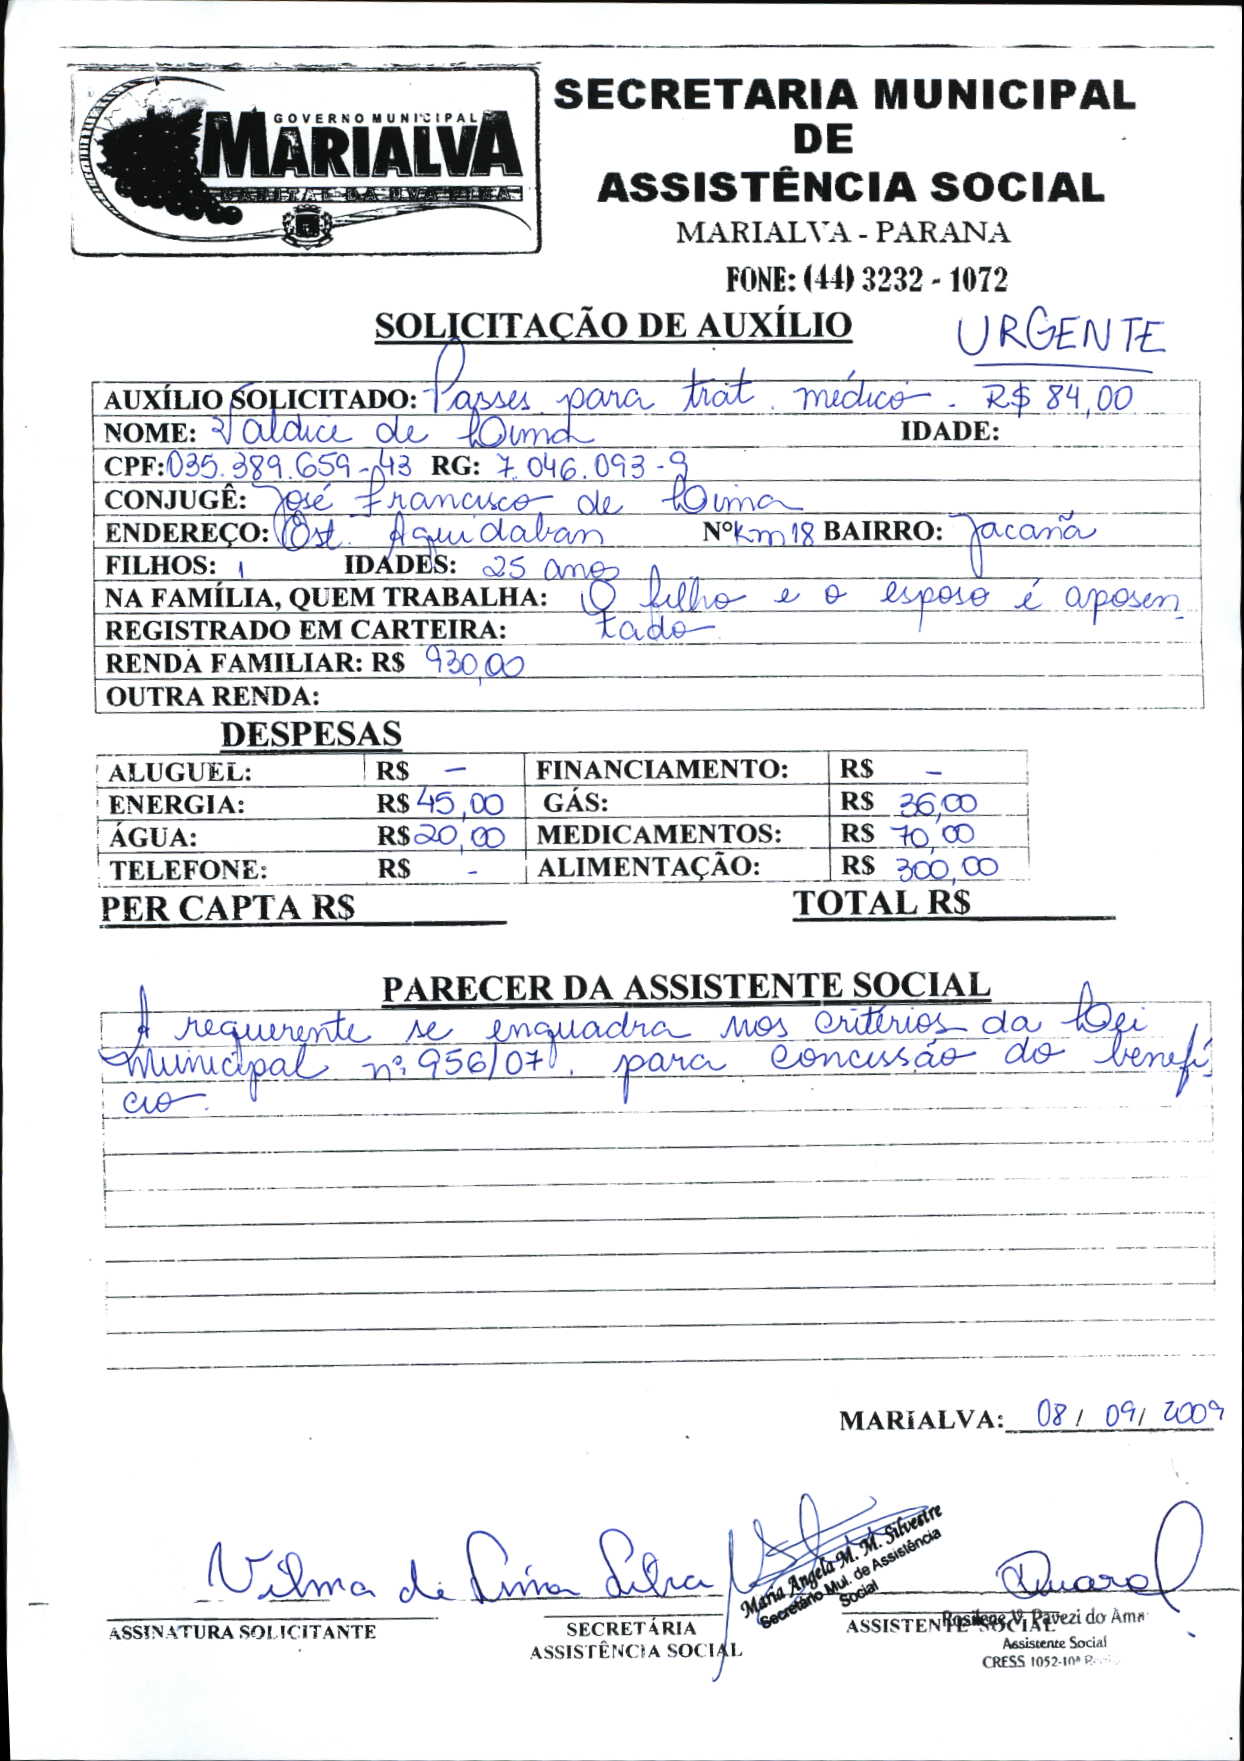 GOVERNO MUNICIPAL
MARIALVA
SECRETARIA MUNICIPAL
DE
ASSISTÊNCIA SOCIAL
MARIALVA - PARANA
FONE: (44) 3232 - 1072
SOLICITAÇÃO DE AUXÍLIO
URGENTE
AUXÍLIO SOLICITADO: Passes para trat. médico - R$ 84,00
NOME: Valdice de Lima IDADE:
CPF: 035.389.659-43 RG: 7.046.093-9
CONJUGÊ: José Francisco de Lima
ENDEREÇO: Est. Aquidaban Nº Km 18 BAIRRO: Jacanã
FILHOS: 1 IDADES: 25 anos
NA FAMÍLIA, QUEM TRABALHA: O filho e o esposo é aposen
REGISTRADO EM CARTEIRA: tado
RENDA FAMILIAR: R$ 930,00
OUTRA RENDA:
DESPESAS
ALUGUEL: R$ - FINANCIAMENTO: R$ -
ENERGIA: R$ 45,00 GÁS: R$ 36,00
ÁGUA: R$ 20,00 MEDICAMENTOS: R$ 70,00
TELEFONE: R$ - ALIMENTAÇÃO: R$ 300,00
PER CAPTA R$ TOTAL R$
PARECER DA ASSISTENTE SOCIAL
A requerente se enquadra nos critérios da Lei
Municipal nº 956/07, para concessão do benefí
cio.
MARIALVA: 08 / 09 / 2009
Vilma de Lima Silva
Maria Angela M. M. Silvestre
Secretário Mul. de Assistência
Social
ASSINATURA SOLICITANTE
SECRETÁRIA
ASSISTÊNCIA SOCIAL
ASSISTENTE SOCIAL
Rosilene V. Pavezi do Ama
Assistente Social
CRESS 1052-10ª